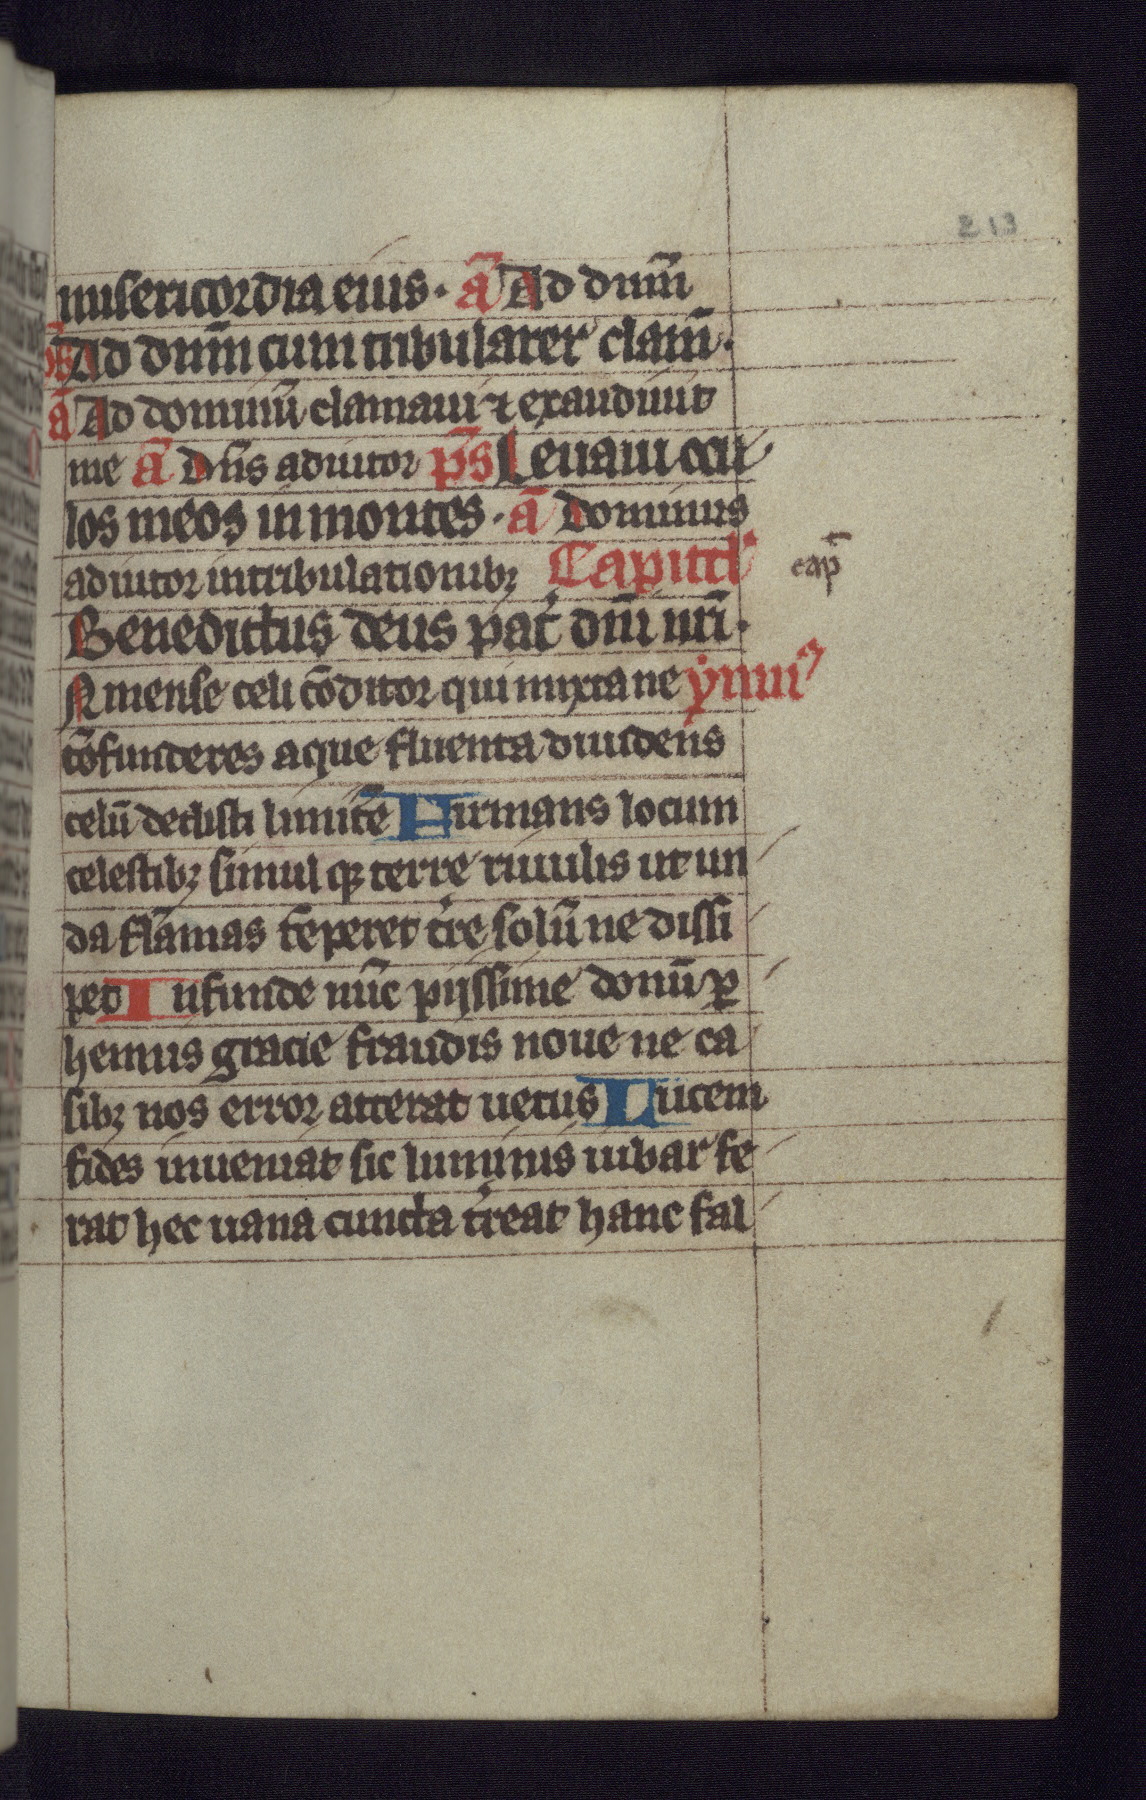 213
misericordia eius · a̅ Ad dnm̅
ps Ad dnm̅ cum tribularer clam̅ ·
a̅ Ad dominu̅ clamaui ⁊ exaudiuit
me a̅ Dn̅s adiutor ps̅ Leuaui ocu
los meos in montes · a̅ Dominus
adiutor in tribulationibꝫ Capitl'
cap̅
Benedictus deus pat̕ dn̅i nr̅i ·
Inmense celi co̅ditor qui mixta ne ẏmnꝰ
co̅funderes aque fluenta diuidens
celu̅ dedisti limite̅ Firmans locum
celestibꝫ simul qꝫ terre riuulis ut un
da fla̅mas te̅peret t̕re solu̅ ne dissi
pet Infunde nu̅c pijssime donu̅ ꝑ
hennis gracie fraudis noue ne ca
sibꝫ nos error atterat uetus Lucem
fides inueniat sic luminis iubar fe
rat hec uana cuncta t̕reat hanc fal